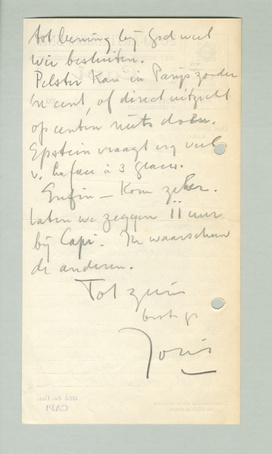 tot leening bij God weet
wie besluiten.
Pelster kan in Parijs zonder
'n cent, of direct uitzicht
op centen niets doen.
Epstein vraagt erg veel
v. à 3 glaces.
Enfin – Kom zeker.
Laten we zeggen 11 uur
bij Capi. Ik waarschuw
de anderen.
Tot ziens
Joris
CAPI